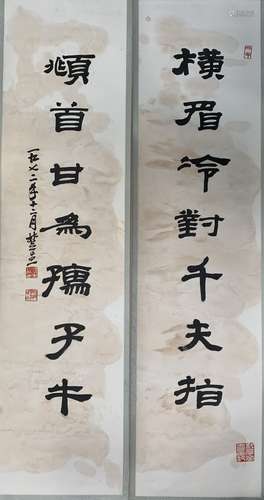 橫眉冷對千夫指
頫首甘為孺子牛
一九七二年十二月